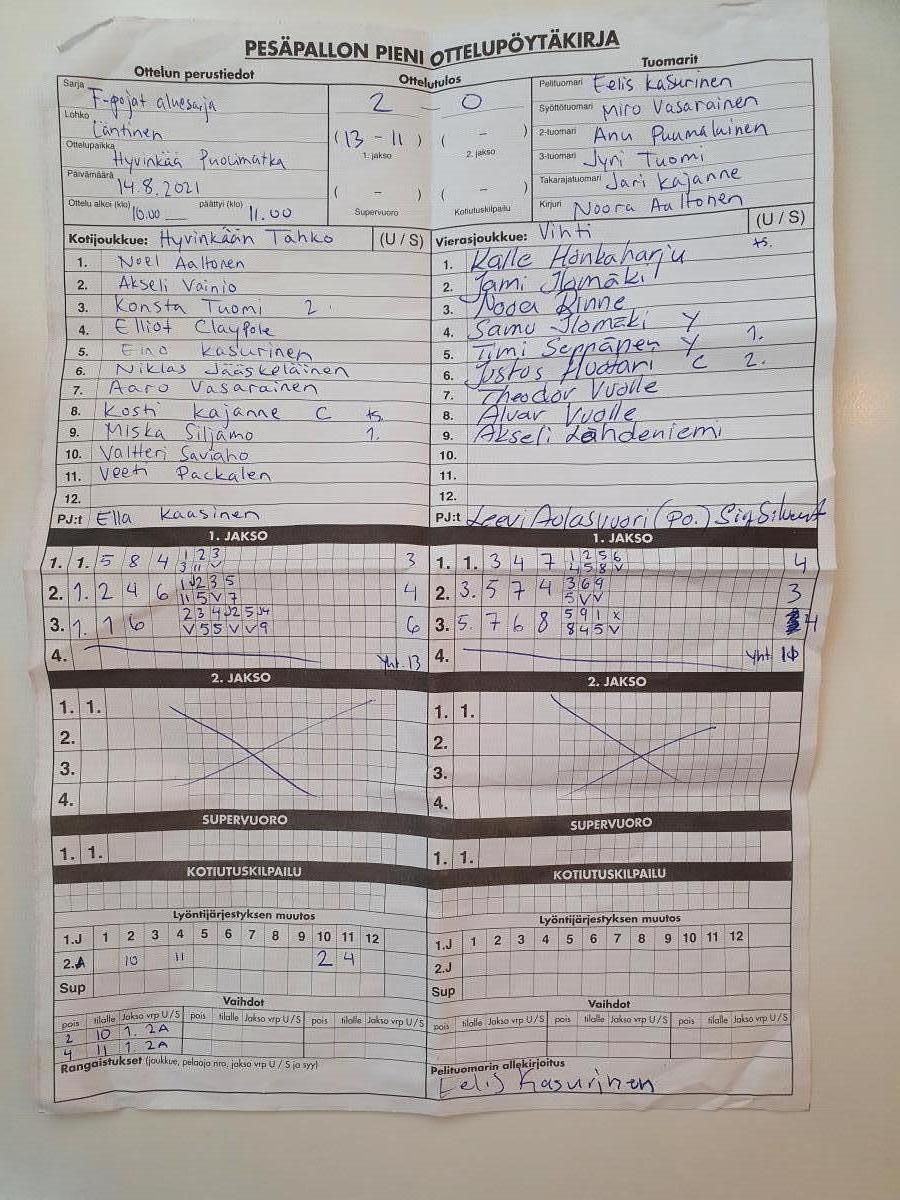 PESÄPALLON PIENI OTTELUPÖYTÄKIRJA
Ottelun perustiedot
Ottelutulos
Tuomarit
Sarja F-pojat aluesarja
Lohko Läntinen
Ottelupaikka Hyvinkää Puolimatka
Päivämäärä 14.8.2021
Ottelu alkoi (klo) 10.00 päättyi (klo) 11.00
2 – 0
(13 – 11) 1. jakso
( – ) 2. jakso
( – ) Supervuoro
( – ) Kotiutuskilpailu
Pelituomari Eelis Kasurinen
Syöttötuomari Miro Vasarainen
2-tuomari Anu Puumalainen
3-tuomari Jyri Tuomi
Takarajatuomari Jari Kajanne
Kirjuri Noora Aaltonen
Kotijoukkue: Hyvinkään Tahko (U / S)
1. Noel Aaltonen
2. Akseli Vainio
3. Konsta Tuomi 2.
4. Elliot Claypole
5. Eino Kasurinen
6. Niklas Jääskeläinen
7. Aaro Vasarainen
8. Kosti Kajanne C ts.
9. Miska Siljamo 1.
10. Valtteri Saviaho
11. Veeti Packalen
12.
PJ:t Ella Kaasinen
Vierasjoukkue: Vihti (U / S)
1. Kalle Honkaharju ts.
2. Jami Ilomäki
3. Nooa Rinne
4. Samu Ilomäki Y
5. Timi Seppänen Y 1.
6. Justus Huotari C 2.
7. Theodor Vuolle
8. Alvar Vuolle
9. Akseli Lahdeniemi
10.
11.
12.
PJ:t Leevi Aulasvuori (po.)
1. JAKSO
1. 1. 5 8 4 1 2 3 3
3 11 V
2. 1. 2 4 6 1 J2 3 5 4
11 5 V 7
3. 1. 1 6 2 3 4 J2 5 J4 6
V 5 5 V V 9
4. Yht. 13
1. JAKSO
1. 1. 3 4 7 1 2 5 6 4
4 5 8 V
2. 3. 5 7 4 3 6 9 3
5 V V
3. 5. 7 6 8 5 9 1 x 4
8 4 5 V
4. Yht
2. JAKSO
1. 1.
2.
3.
4.
2. JAKSO
1. 1.
2.
3.
4.
SUPERVUORO
1. 1.
SUPERVUORO
1. 1.
KOTIUTUSKILPAILU
KOTIUTUSKILPAILU
Lyöntijärjestyksen muutos
1.J 1 2 3 4 5 6 7 8 9 10 11 12
2.A 10 11 2 4
Sup
Lyöntijärjestyksen muutos
1.J 1 2 3 4 5 6 7 8 9 10 11 12
2.J
Sup
Vaihdot
pois tilalle Jakso vrp U / S pois tilalle Jakso vrp U / S pois tilalle Jakso vrp U / S
2 10 1. 2A
4 11 1. 2A
Vaihdot
pois tilalle Jakso vrp U / S pois tilalle Jakso vrp U / S pois tilalle Jakso vrp U / S
Rangaistukset (joukkue, pelaaja nro, jakso vrp U / S ja syy)
Pelituomarin allekirjoitus
Eelis Kasurinen